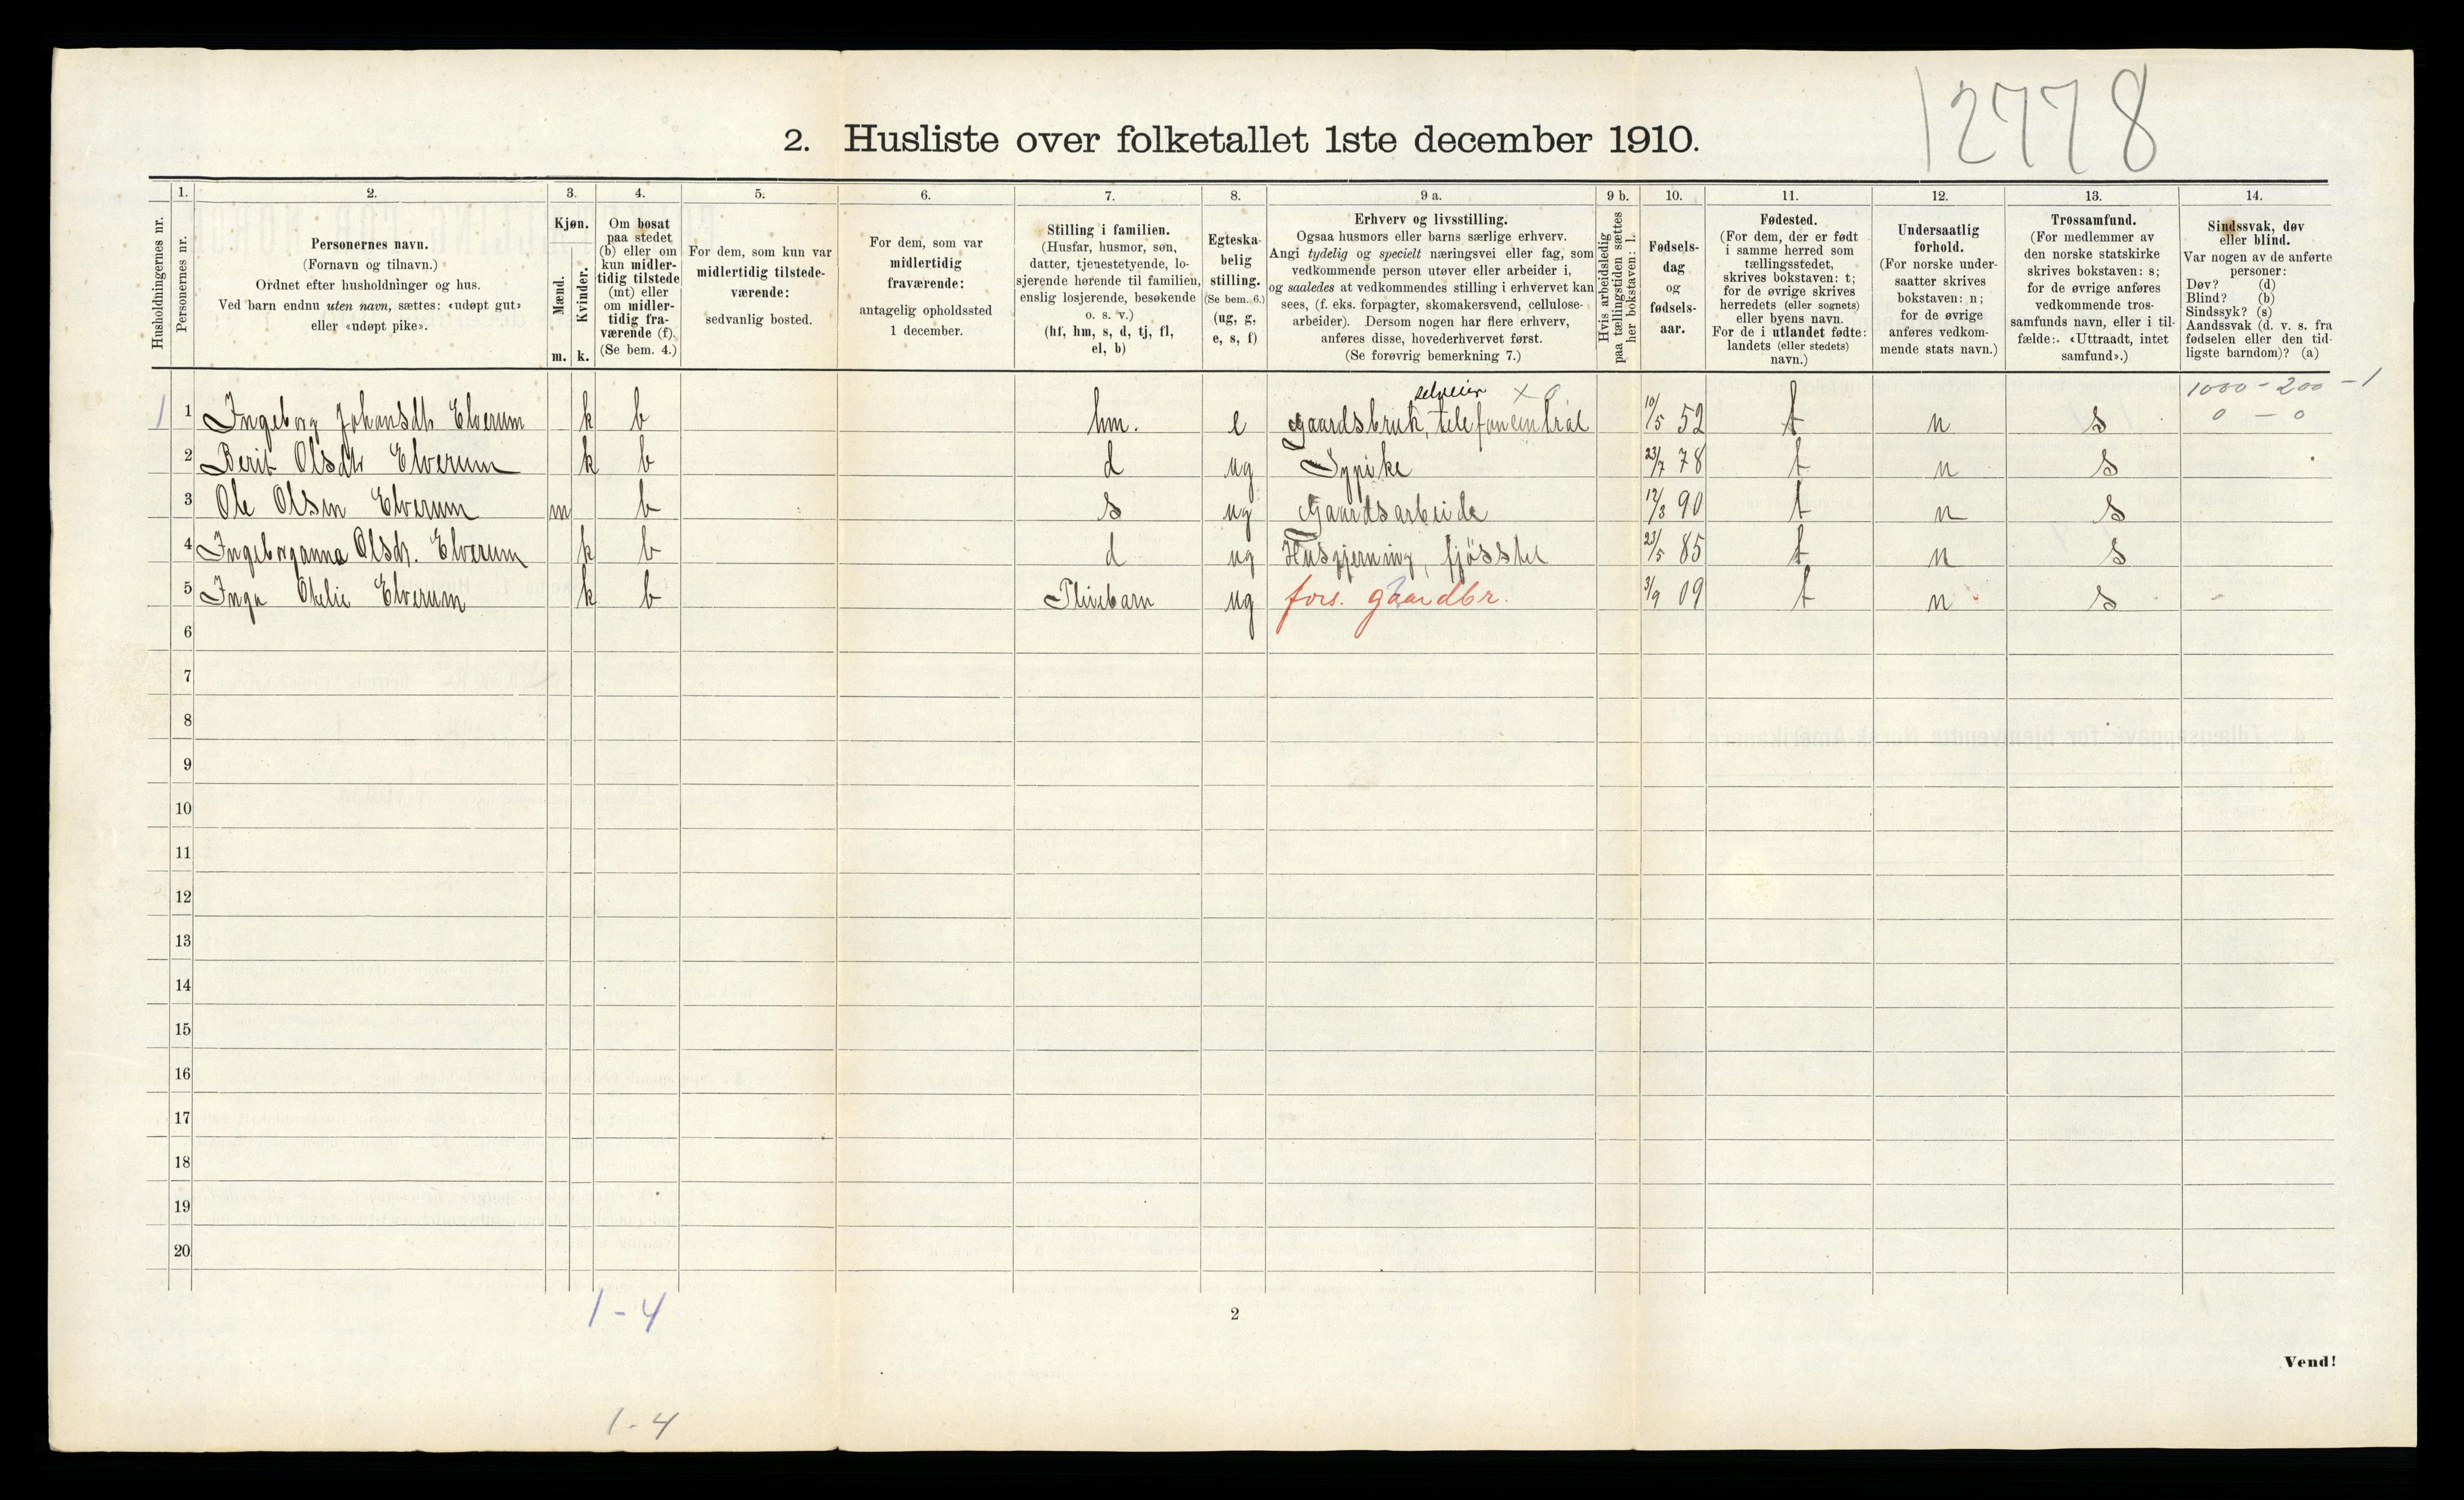 12778
2. Husliste over folketallet 1ste december 1910.
Husholdningernes nr.
1.
Personernes nr.
2.
Personernes navn.
(Fornavn og tilnavn.)
Ordnet efter husholdninger og hus.
Ved barn endnu uten navn, sættes: «udøpt gut»
eller «udøpt pike».
3.
Kjøn.
Mænd.
Kvinder.
m. k.
4.
Om bosat
paa stedet
(b) eller om
kun midler-
tidig tilstede
(mt) eller
om midler-
tidig fra-
værende (f).
(Se bem. 4.)
5.
For dem, som kun var
midlertidig tilstede-
værende:
sedvanlig bosted.
6.
For dem, som var
midlertidig
fraværende:
antagelig opholdssted
1 december.
7.
Stilling i familien.
(Husfar, husmor, søn,
datter, tjenestetyende, lo-
sjerende hørende til familien,
enslig losjerende, besøkende
o. s. v.)
(hf, hm, s, d, tj, fl,
el, b)
8.
Egteska-
belig
stilling.
(Se bem. 6.)
(ug, g,
e, s, f)
9 a.
Erhverv og livsstilling.
Ogsaa husmors eller barns særlige erhverv.
Angi tydelig og specielt næringsvei eller fag, som
vedkommende person utøver eller arbeider i,
og saaledes at vedkommendes stilling i erhvervet kan
sees, (f. eks. forpagter, skomakersvend, cellulose-
arbeider). Dersom nogen har flere erhverv,
anføres disse, hovederhvervet først.
(Se forøvrig bemerkning 7.)
9 b.
Hvis arbeidsledig
paa tællingstiden sættes
her bokstaven: l.
10.
Fødsels-
dag
og
fødsels-
aar.
11.
Fødested.
(For dem, der er født
i samme herred som
tællingsstedet,
skrives bokstaven: t;
for de øvrige skrives
herredets (eller sognets)
eller byens navn.
For de i utlandet fødte:
landets (eller stedets)
navn.)
12.
Undersaatlig
forhold.
(For norske under-
saatter skrives
bokstaven: n;
for de øvrige
anføres vedkom-
mende stats navn.)
13.
Trossamfund.
(For medlemmer av
den norske statskirke
skrives bokstaven: s;
for de øvrige anføres
vedkommende tros-
samfunds navn, eller i til-
fælde: «Uttraadt, intet
samfund».)
14.
Sindssvak, døv
eller blind.
Var nogen av de anførte
personer:
Døv? (d)
Blind? (b)
Sindssyk? (s)
Aandssvak (d. v. s. fra
fødselen eller den tid-
ligste barndom)? (a)
selveier x 0 1000 - 200 - 1
1 1 Ingeborg Johansdtr Elverum k b hm. e gaardsbruk, telefoncentral 10/5 52 t n s 0 - 0
2 Berit Olsdtr Elverum k b d ug Sypike 23/7 78 t n s
3 Ole Olsen Elverum m b s ug Gaardsarbeide 12/3 90 t n s
4 Ingeborganna Olsdt. Elverum k b d ug Husgjerning, fjösstel 23/5 85 t n s
5 Inga Otelie Elverum k b Pleiebarn ug fors. gaardbr. 3/9 09 t n s
6
7
8
9
10
11
12
13
14
15
16
17
18
19
20
1-4
2
Vend!
1-4